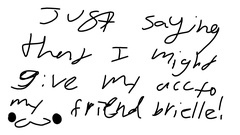 Just saying
that I might
give my acc to
my friend brielle!